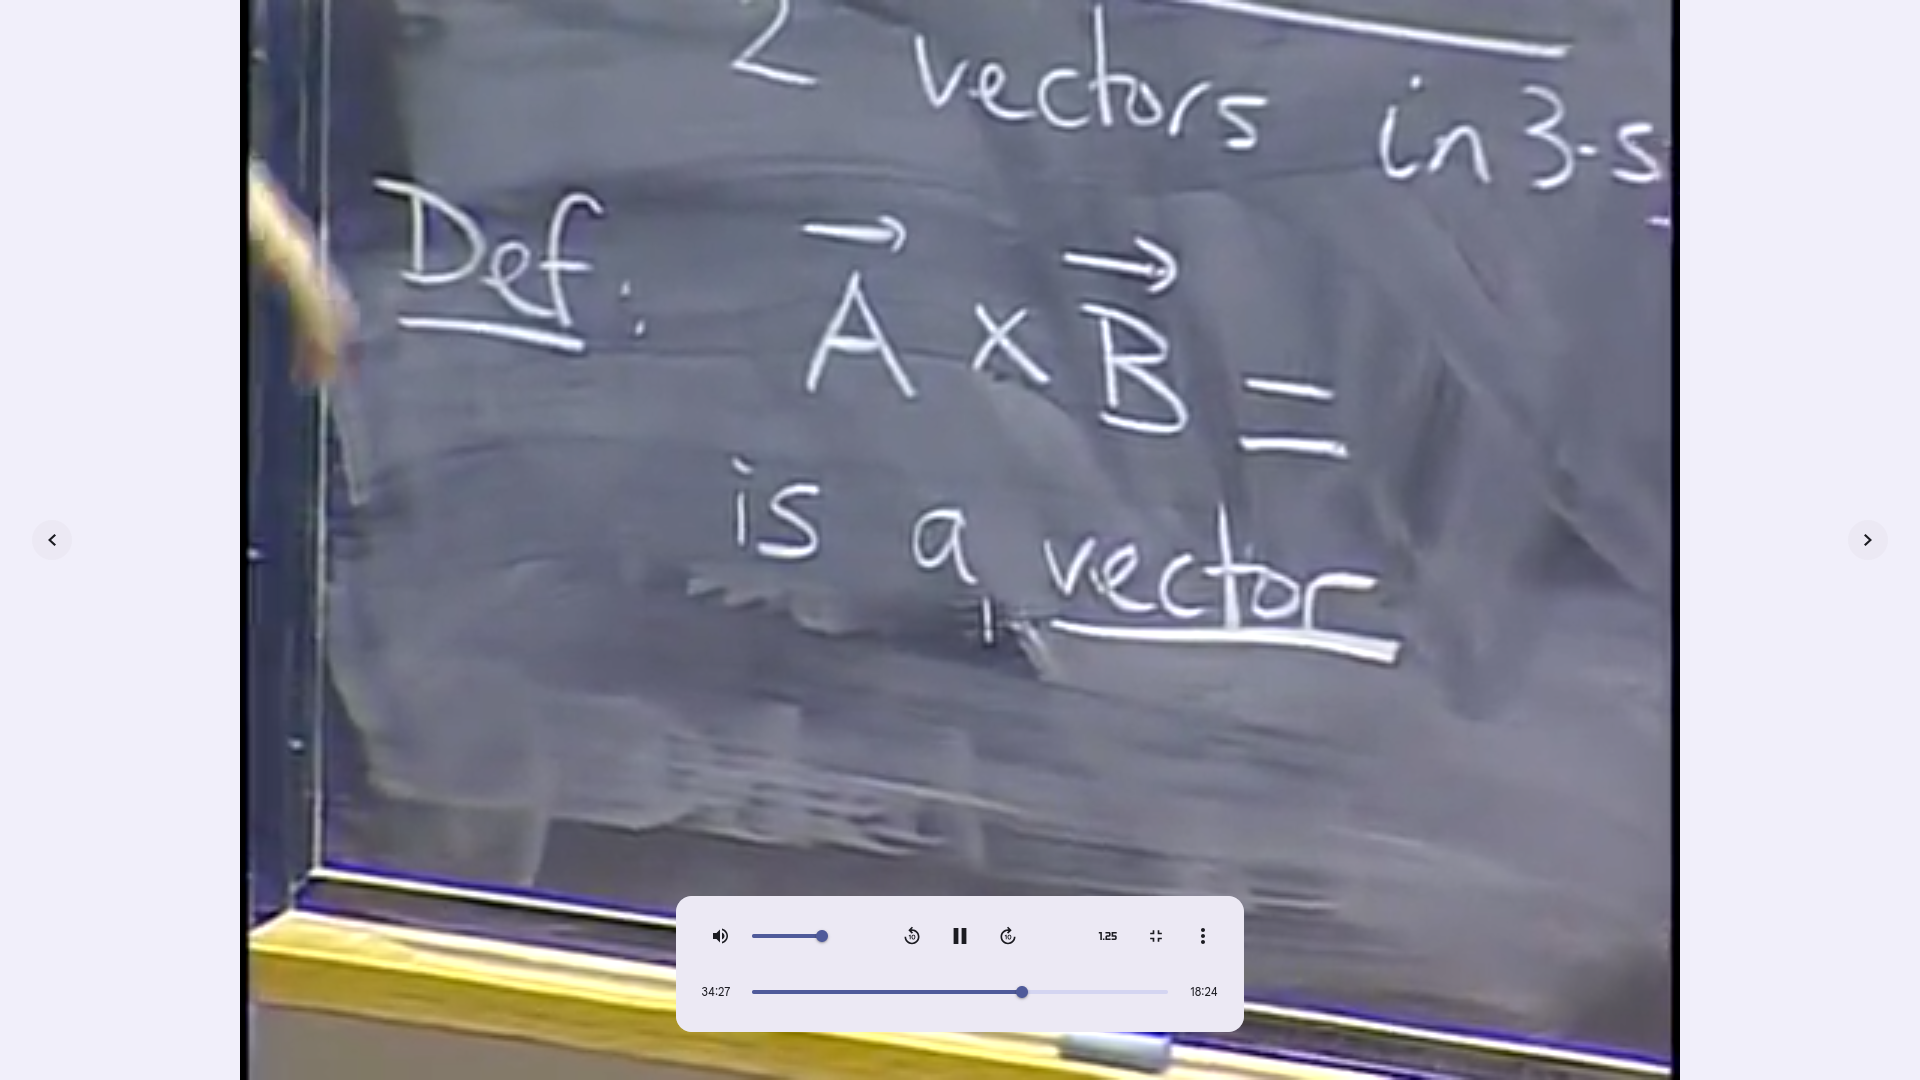 2 vectors in 3-s
Def: A × B =
is a vector
1.25
34:27
18:24